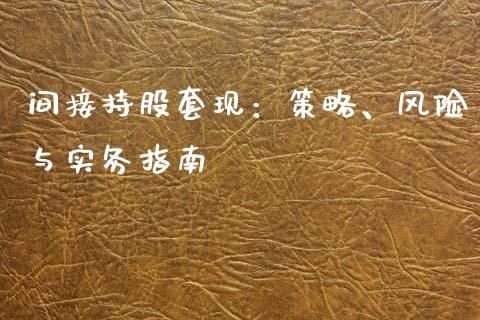 间接持股套现：策略、风险
与实务指南